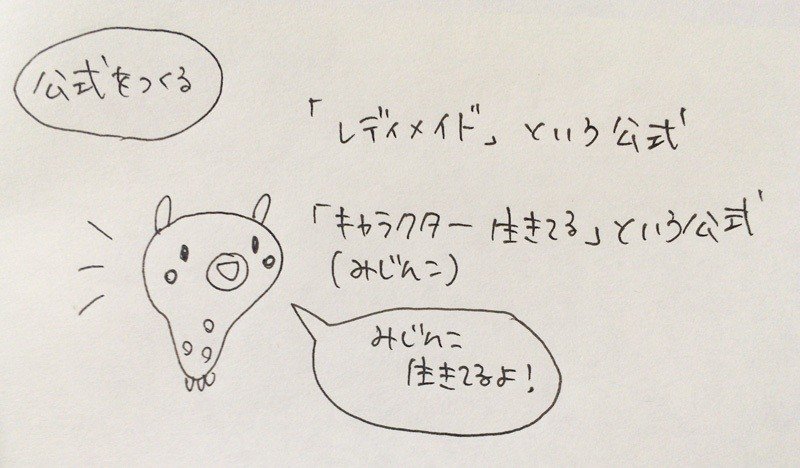 公式をつくる
「レディメイド」という公式
「キャラクター生きてる」という公式
(みじんこ)
みじんこ
生きてるよ!